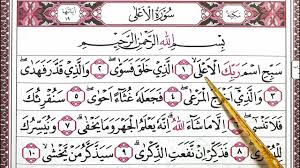 مكية
سورة الأعلى
آياتها ١٩
بسم الله الرحمن الرحيم
سبح اسم ربك الأعلى ١ الذي خلق فسوى ٢ والذي قدر فهدى
٣ والذي أخرج المرعى ٤ فجعله غثاء أحوى ٥ سنقرئك
فلا تنسى ٦ إلا ما شاء الله إنه يعلم الجهر وما يخفى ٧ ونيسرك
٨ فذكر إن نفعت الذكرى ٩ سيذكر من يخشى ١٠